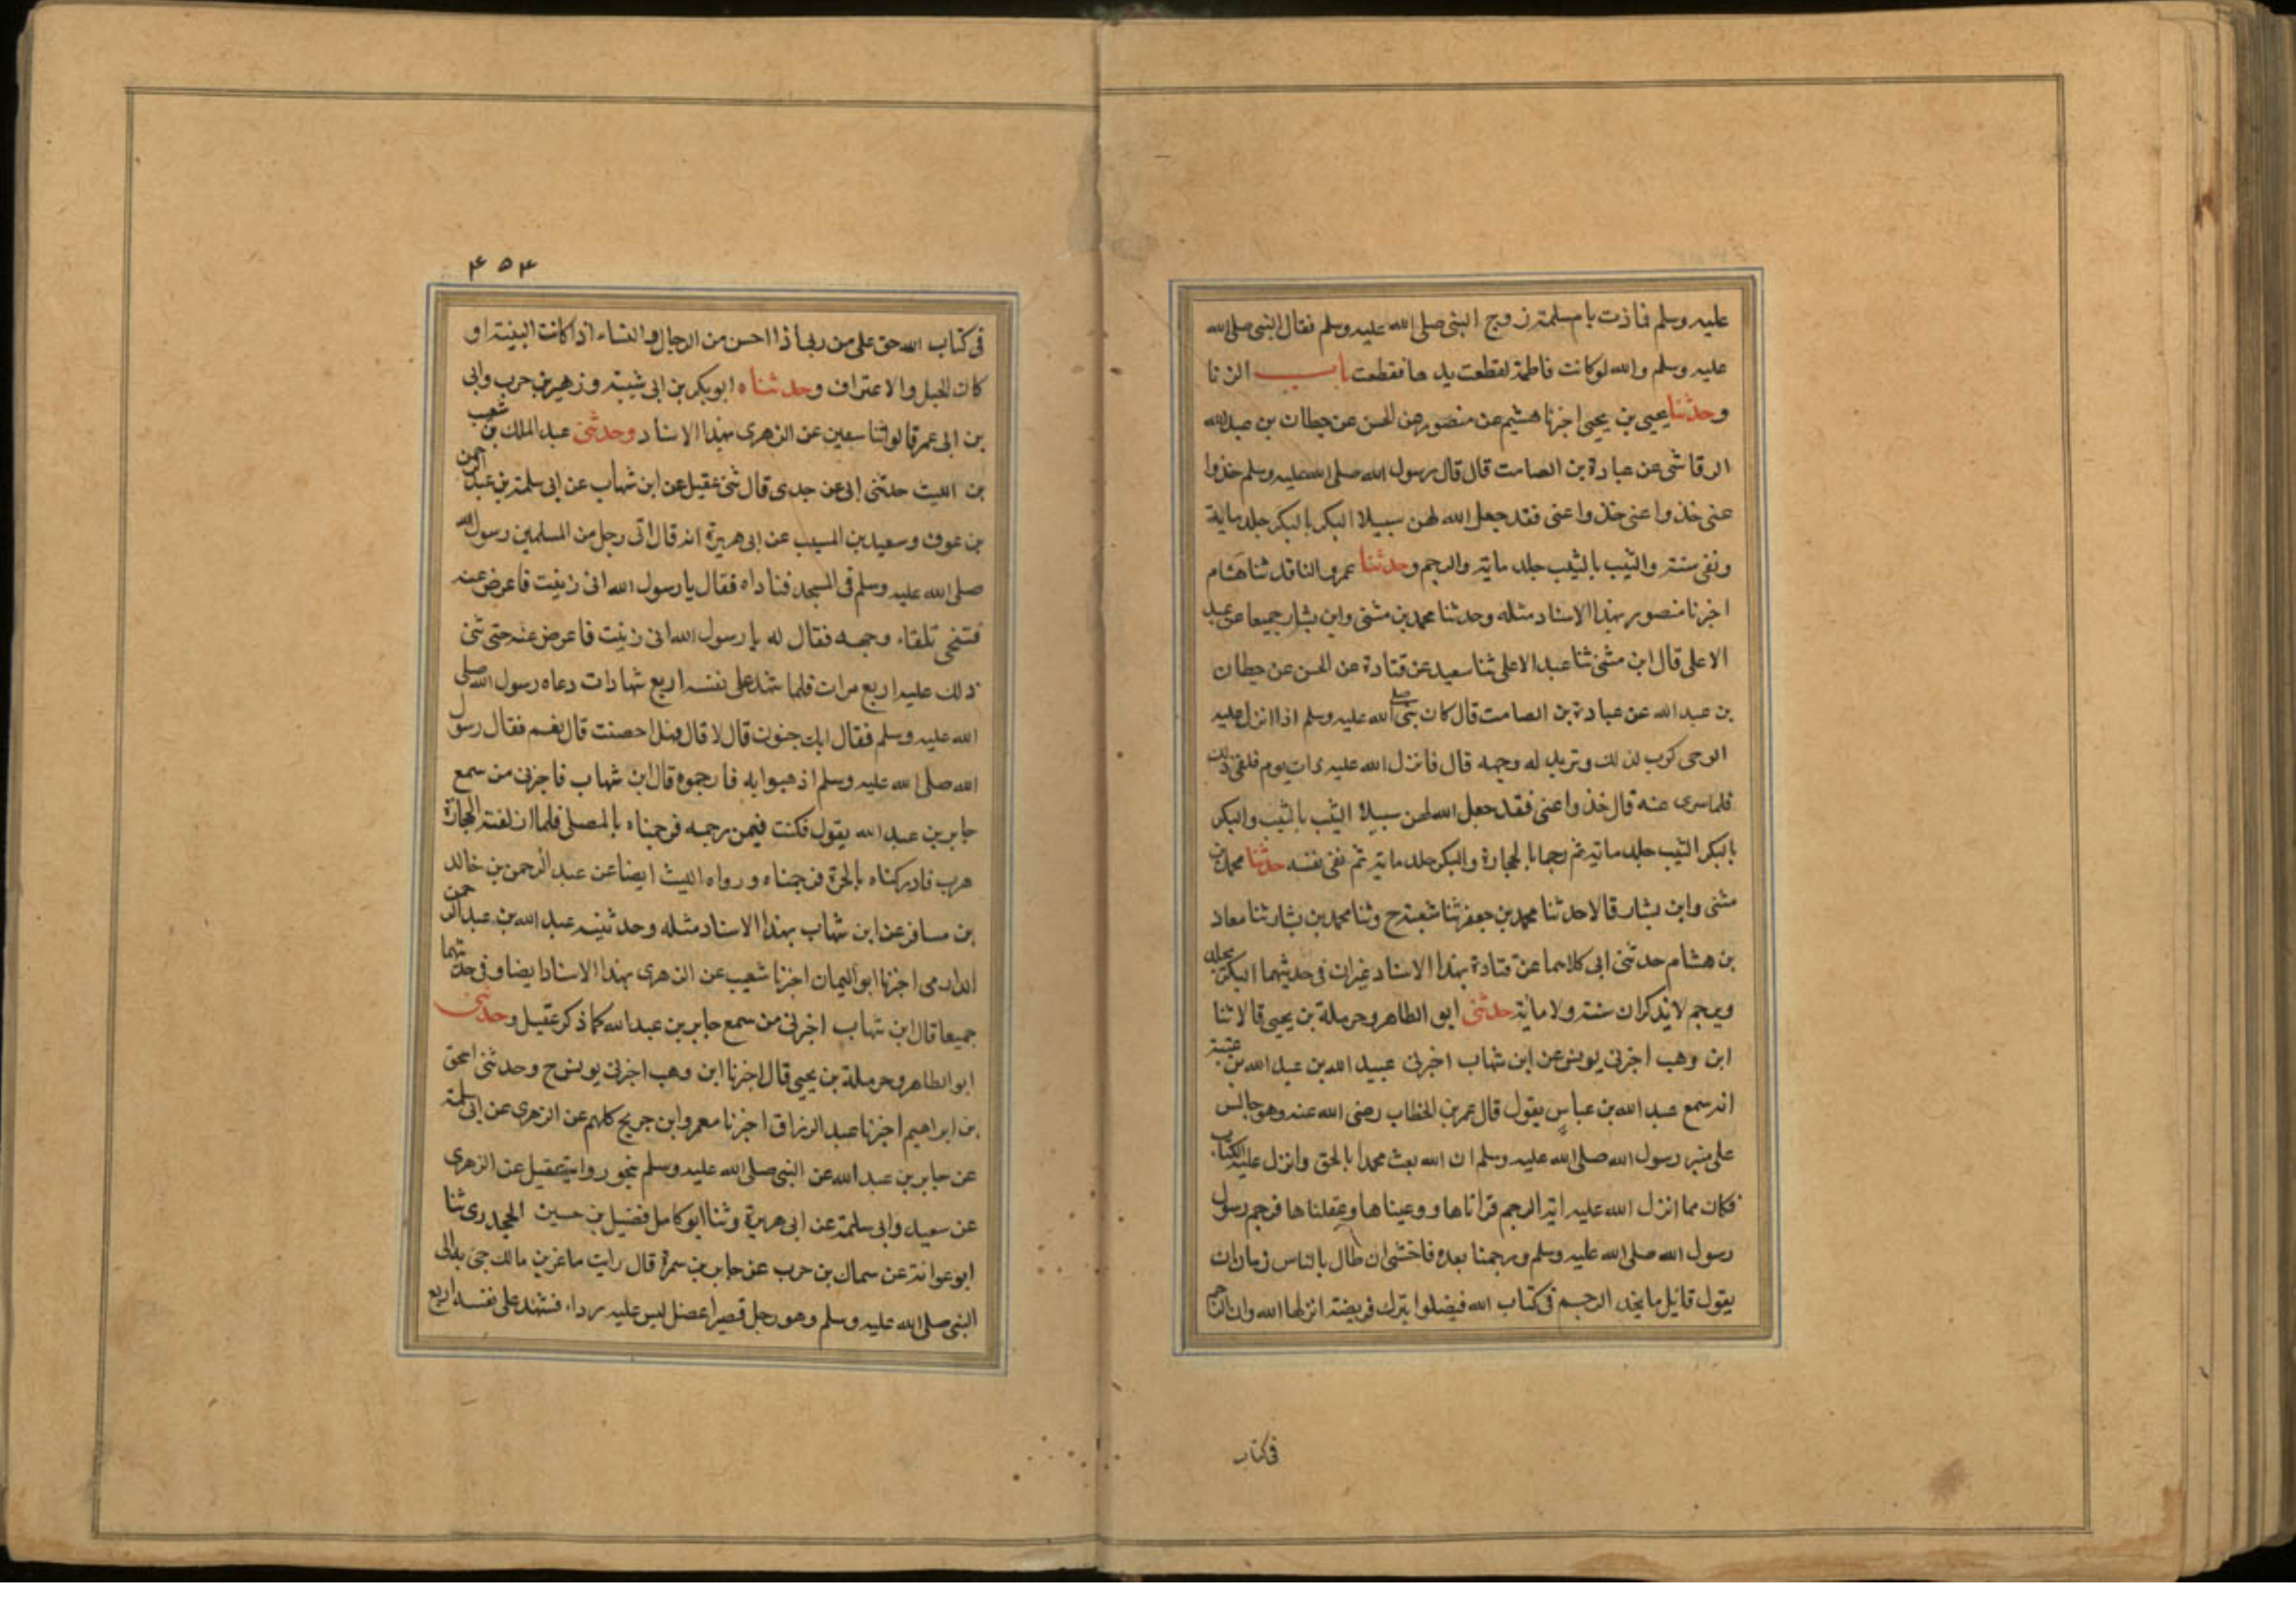 عليه وسلم فعاذت بام سلمة زوج النبى صلى الله عليه وسلم فقال النبى صلى الله
عليه وسلم والله لوكانت فاطمة لقطعت يدها فقطعت باب الزنا
وحدثنا يحيى بن يحيى اخبرنا هشيم عن منصور عن الحسن عن حطان بن عبد الله
الرقاشى عن عبادة بن الصامت قال قال رسول الله صلى الله عليه وسلم خذوا
عنى خذوا عنى خذوا عنى فقد جعل الله لهن سبيلا البكر بالبكر جلد ماية
ونفى سنة والثيب بالثيب جلد ماية والرجم وحدثنا عمرو الناقد ثنا هشام
اخبرنا منصور بهذا الاسناد مثله وحدثنا محمد بن مثنى وابن بشار جميعا عن عبد
الاعلى قال ابن مثنى ثنا عبد الاعلى ثنا سعيد عن قتادة عن الحسن عن حطان
بن عبد الله عن عبادة بن الصامت قال كان نبى الله صلى عليه وسلم اذا انزل عليه
الوحى كرب لذلك وتربد له وجهه قال فانزل الله عليه ذات يوم فلقى ذلك
فلما سرى عنه قال خذوا عنى فقد جعل الله لهن سبيلا الثيب بالثيب والبكر
بالبكر الثيب جلد ماية ثم رجما بالحجارة والبكر جلد ماية ثم نفى سنة حدثنا محمد بن
مثنى وابن بشار قالا حدثنا محمد بن جعفر ثنا شعبة ح وثنا محمد بن بشار ثنا معاذ
بن هشام حدثنى ابى كلاهما عن قتادة بهذا الاسناد غيران فى حديثهما البكر يجلد
ويرجم لايذكران سنة ولا ماية حدثنى ابو الطاهر وحرملة بن يحيى قالا ثنا
ابن وهب اخبرنى يونس عن ابن شهاب اخبرنى عبيد الله بن عبد الله بن عتبة
انه سمع عبد الله بن عباس يقول قال عمر بن الخطاب رضى الله عنه وهو جالس
على منبر رسول الله صلى الله عليه وسلم ان الله بعث محمدا بالحق وانزل عليه الكتاب
فكان مما انزل الله عليه اية الرجم قراناها ووعيناها وعقلناها فرجم رسول
رسول الله صلى الله عليه وسلم ورجمنا بعده فاخشى ان طال بالناس زمان ان
يقول قائل ما نجد الرجم فى كتاب الله فيضلوا بترك فريضة انزلها الله وان الرجم
فى كتاب
۴۵۴
فى كتاب الله حق على من زنى اذا احسن من الرجال والنساء اذا كانت البينة او
كان الحبل والاعتراف وحدثناه ابو بكر بن ابى شيبة وزهير بن حرب وابى
بن ابى عمر قالوا ثنا سفين عن الزهرى بهذا الاسناد وحدثنى عبد الملك بن شعيب
بن الليث حدثنى ابى عن جدى قال ثنى عقيل عن ابن شهاب عن ابى سلمة بن عبد الرحمن
بن عوف وسعيد بن المسيب عن ابى هريرة انه قال اتى رجل من المسلمين رسول الله
صلى الله عليه وسلم فى المسجد فناداه فقال يا رسول الله انى زنيت فاعرض عنه
فتنحى تلقاء وجهه فقال له يا رسول الله انى زنيت فاعرض عنه حتى ثنى
ذلك عليه اربع مرات فلما شهد على نفسه اربع شهادات دعاه رسول الله صلى
الله عليه وسلم فقال ابك جنون قال لا قال فهل احصنت قال نعم فقال رسول
الله صلى الله عليه وسلم اذهبوا به فارجموه قال ابن شهاب فاخبرنى من سمع
جابر بن عبد الله يقول فكنت فيمن رجمه فرجمناه بالمصلى فلما اذلقته الحجارة
هرب فادركناه بالحرة فرجمناه ورواه الليث ايضا عن عبد الرحمن بن خالد
بن مسافر عن ابن شهاب بهذا الاسناد مثله وحدثنيه عبد الله بن عبد الرحمن
الدارمى اخبرنا ابو اليمان اخبرنا شعيب عن الزهرى بهذا الاسناد ايضا وفى حديثهما
جميعا قال ابن شهاب اخبرنى من سمع جابر بن عبد الله كما ذكر عقيل وحدثنى
ابو الطاهر وحرملة بن يحيى قال اخبرنا ابن وهب اخبرنى يونس ح وحدثنى اسحق
بن ابراهيم اخبرنا عبد الرزاق اخبرنا معمر وابن جريج كلهم عن الزهرى عن ابى سلمة
عن جابر بن عبد الله عن النبى صلى الله عليه وسلم نحو رواية عقيل عن الزهرى
عن سعيد وابى سلمة عن ابى هريرة وثنا ابو كامل فضيل بن حسين الجحدرى ثنا
ابو عوانة عن سماك بن حرب عن جابر بن سمرة قال رايت ماعز بن مالك جئ به الى
النبى صلى الله عليه وسلم وهو رجل قصير اعضل ليس عليه رداء فشهد على نفسه اربع